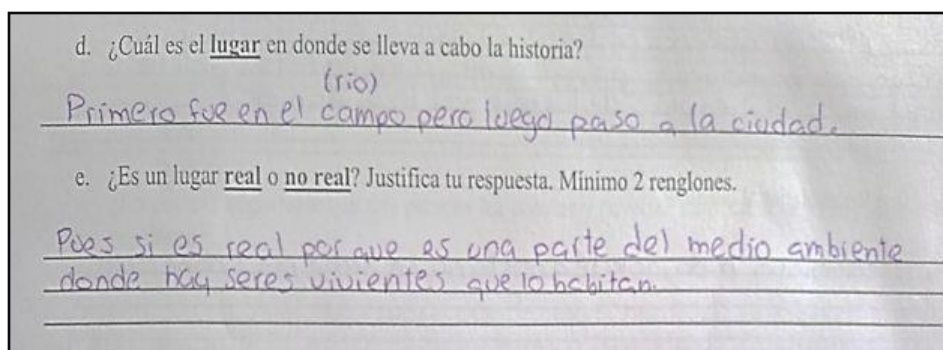 d. ¿Cuál es el lugar en donde se lleva a cabo la historia?
(rio)
Primero fue en el campo pero luego paso a la ciudad.
e. ¿Es un lugar real o no real? Justifica tu respuesta. Mínimo 2 renglones.
Pues si es real por que es una parte del medio ambiente
donde hay seres vivientes que lo habitan.